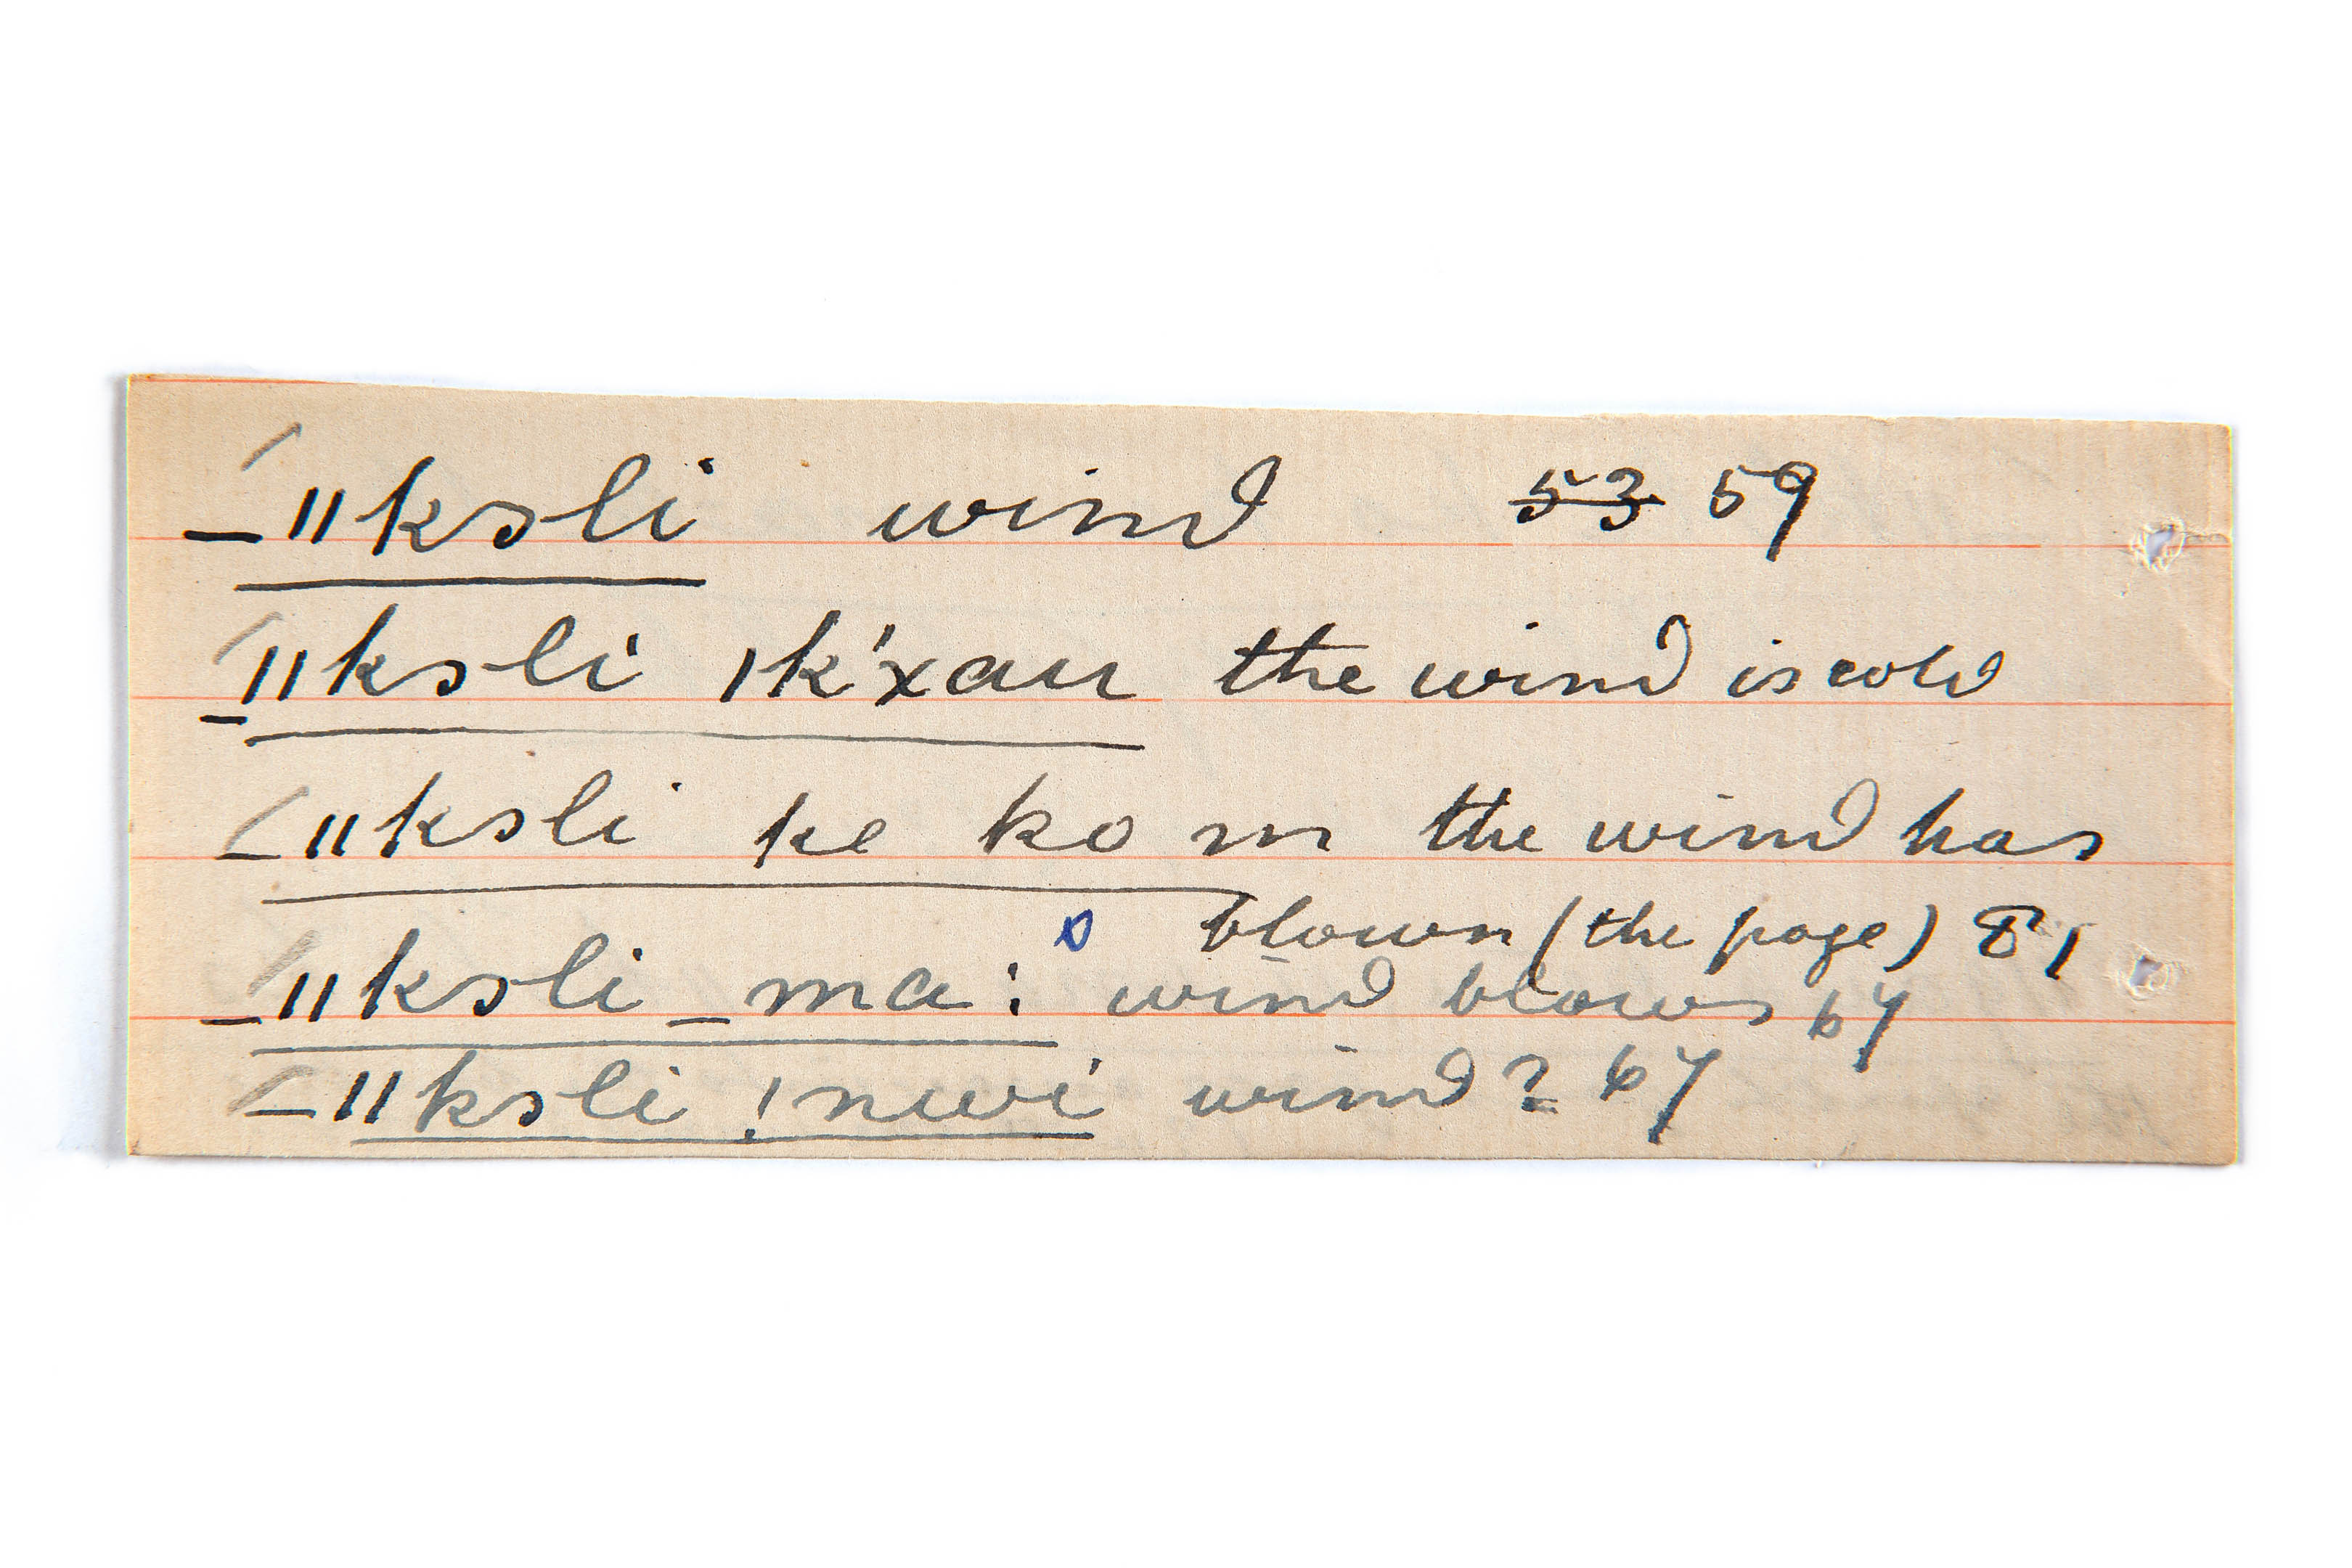 _ǁksli wind ~~53~~ 59
_ǁksli ǀk'xau the wind is cold
_ǁksli ke ko m the wind has
blown (the page) 81
_ǁksli _ma: wind blows 67
_ǁksli !nwi wind? 67